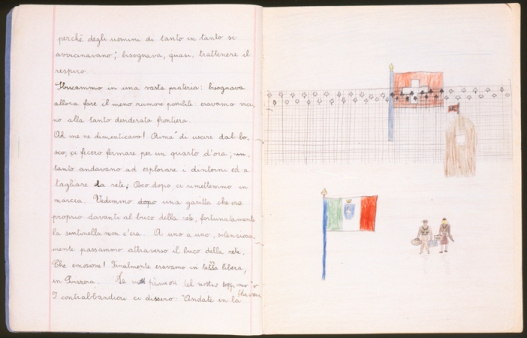 perché degli uomini di tanto in tanto si
avvicinavano; bisognava, quasi, trattenere il
respiro.
Sbucammo in una vasta prateria: bisognava
allora fare il meno rumore possibile. eravamo vici,
no alla tanto desiderata frontiera.
Ah me ne dimenticavo! Prima di uscire dal bo,
sco, ci fecero fermare per un quarto d'ora, in,
tanto andavano ad esplorare i dintorni ed a
tagliare la rete; Poco dopo, ci rimettemmo in
marcia. Vedemmo dopo una garitta che era
proprio davanti al buco della rete, fortunatamente
la sentinella non c'era. A uno a uno, silenziosa
mente passammo attraverso il buco della rete.
Che emozione! Finalmente eravamo in terra libera,
in Svizzera.
I contrabbandieri ci dissero: "Andate en la